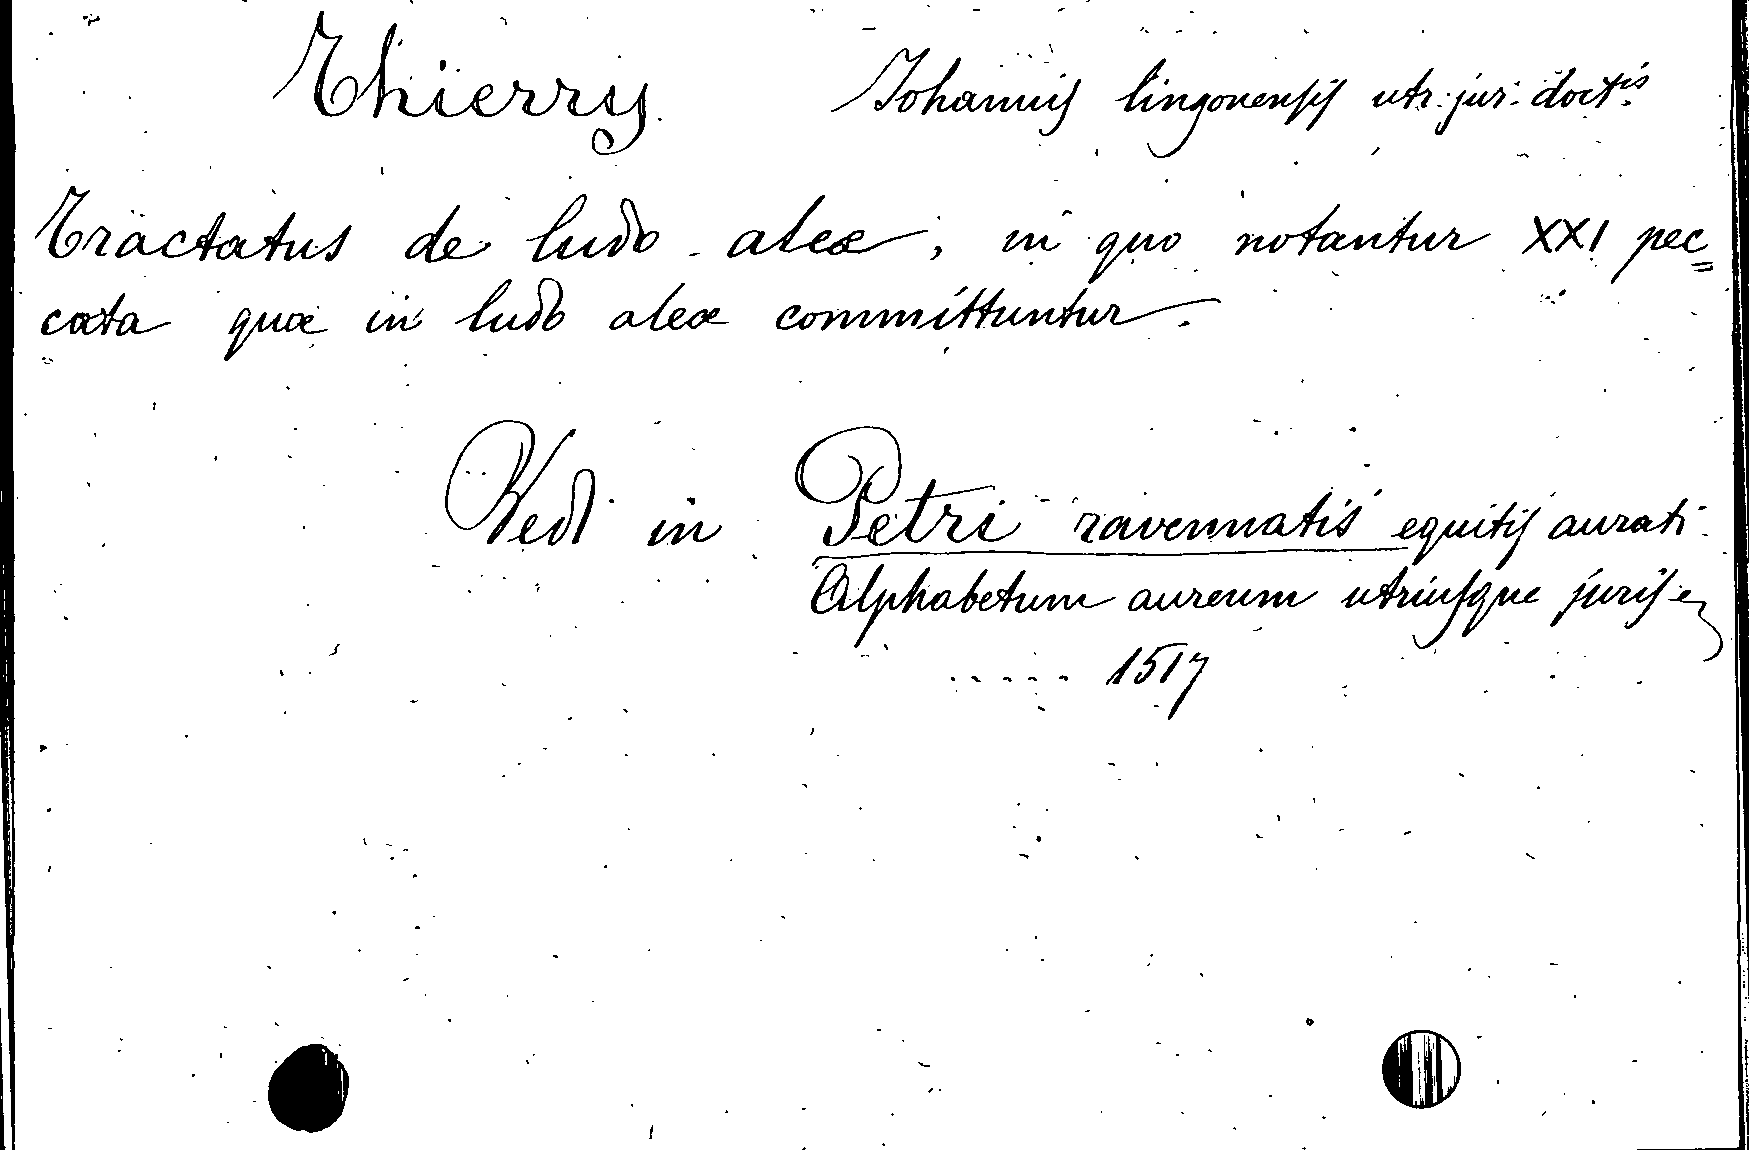 Thierry Iohannis lingonensis utr. jur. doctis
Tractatus de ludo aleæ, in quo notantur XXI pec=
cata quæ in ludo aleæ committuntur.
Vedi in Petri ravennatis equitis aurati
Alphabetum aureum utriusque juris
..... 1517